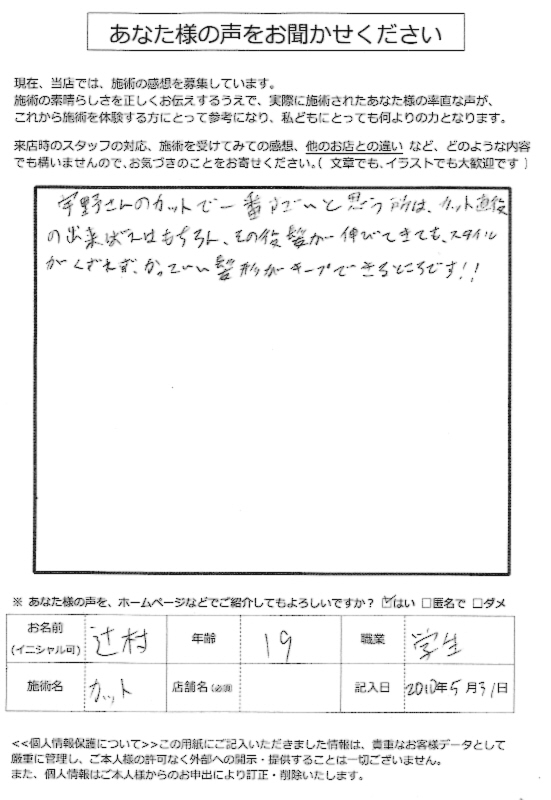 あなた様の声をお聞かせください
現在、当店では、施術の感想を募集しています。
施術の素晴らしさを正しくお伝えするうえで、実際に施術されたあなた様の率直な声が、
これから施術を体験する方にとって参考になり、私どもにとっても何よりの力となります。
来店時のスタッフの対応、施術を受けてみての感想、他のお店との違い など、どのような内容
でも構いませんので、お気づきのことをお寄せください。( 文章でも、イラストでも大歓迎です )
宇野さんのカットで一番すごいと思う所は、カット直後
の出来ばえはもちろん、その後髪が伸びてきても、スタイル
がくずれず、かっこいい髪形がキープできるところです!!
※ あなた様の声を、ホームページなどでご紹介してもよろしいですか? ☑はい □匿名で □ダメ
お名前 (イニシャル可) 辻村 年齢 19 職業 学生
施術名 カット 店舗名 (必須) 記入日 2010年5月31日
<<個人情報保護について>>この用紙にご記入いただきました情報は、貴重なお客様データとして
厳重に管理し、ご本人様の許可なく外部への開示・提供することは一切ございません。
また、個人情報はご本人様からのお申出により訂正・削除いたします。